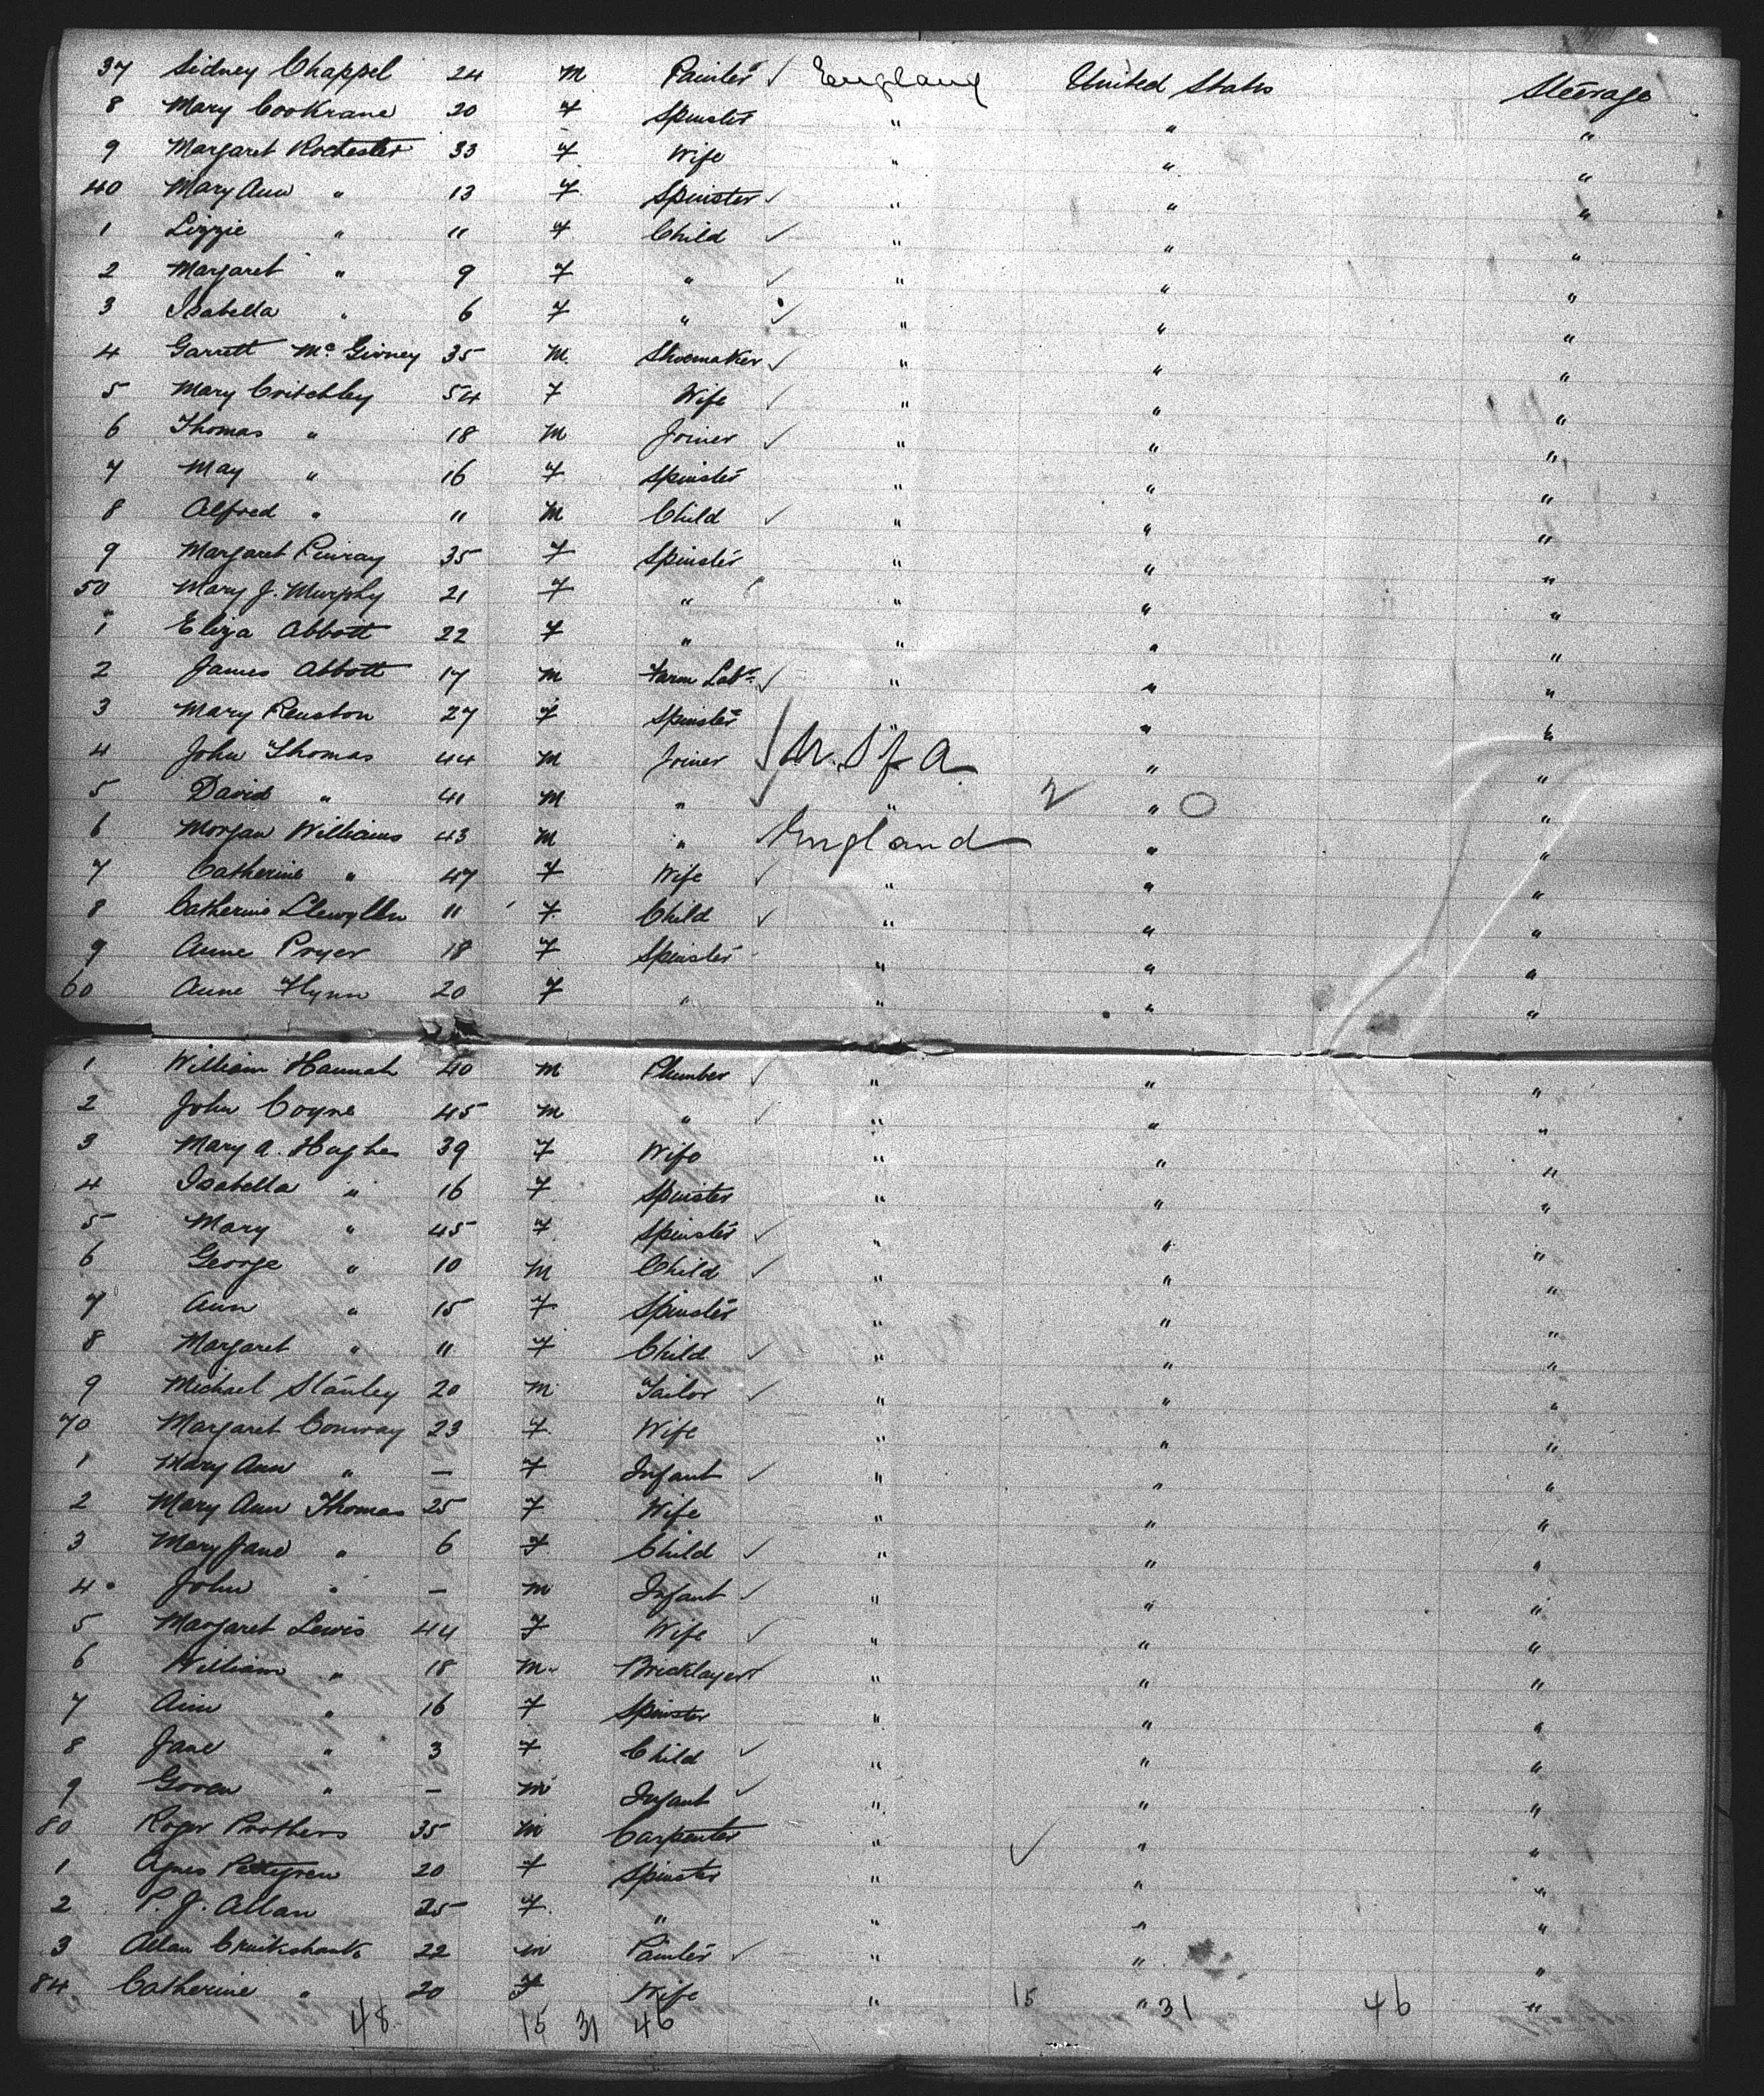 37 Sidney Chappel 24 M Painter ✓ England United States Steerage
8 Mary Cookrane 20 F Spinster " " "
9 Margaret Rochester 33 F Wife " " "
40 Mary Ann " 13 F Spinster ✓ " " "
1 Lizzie " 11 F Child ✓ " " "
2 Margaret " 9 F " ✓ " " "
3 Isabella " 6 F " ✓ " " "
4 Garrett McGivney 35 M Shoemaker ✓ " " "
5 Mary Critchley 54 F Wife ✓ " " "
6 Thomas " 18 M Joiner ✓ " " "
7 May " 16 F Spinster " " "
8 Alfred " 11 M Child ✓ " " "
9 Margaret 35 F Spinster " " "
50 Mary J. Murphy 21 F " " " "
1 Eliza Abbott 22 F " " " "
2 James Abbott 17 M Farm Labr ✓ " " "
3 Mary 27 F Spinster " " "
4 John Thomas 44 M Joiner U.S of A " "
5 David " 41 M " ✓ " 2 " O "
6 Morgan Williams 43 M " England " "
7 Catherine " 47 F Wife ✓ " " "
8 Catherine Llewyllin 11 F Child ✓ " " "
9 Anne Pryer 18 F Spinster " " "
60 Anne Flynn 20 F " " " "
1 William Hannah 40 M Plumber ✓ " " "
2 John Coyne 45 M " ✓ " " "
3 Mary A. Hughes 39 F Wife " " "
4 Isabella " 16 F Spinster " " "
5 Mary " 45 F Spinster ✓ " " "
6 George " 10 M Child ✓ " " "
7 Ann " 15 F Spinster " " "
8 Margaret " 11 F Child ✓ " " "
9 Michael Stanley 20 M Tailor ✓ " " "
70 Margaret Conway 23 F Wife " " "
1 Mary Ann " — F Infant ✓ " " "
2 Mary Ann Thomas 25 F Wife " " "
3 Mary Jane " 6 F Child ✓ " " "
4 John " — M Infant ✓ " " "
5 Margaret Lewis 44 F Wife ✓ " " "
6 William " 18 M Bricklayer ✓ " " "
7 Ann " 16 F Spinster " " "
8 Jane " 3 F Child ✓ " " "
9 " — M Infant ✓ " " "
80 Roger Prothers 35 M Carpenter " ✓ " "
1 Agnes Pettigrew 20 F Spinster " " "
2 P. J. Allan 25 F " " " "
3 Allan Cruikshank 22 M Painter ✓ " " "
84 Catherine " 20 F Wife " 15 " 31 46 "
48 15 31 46